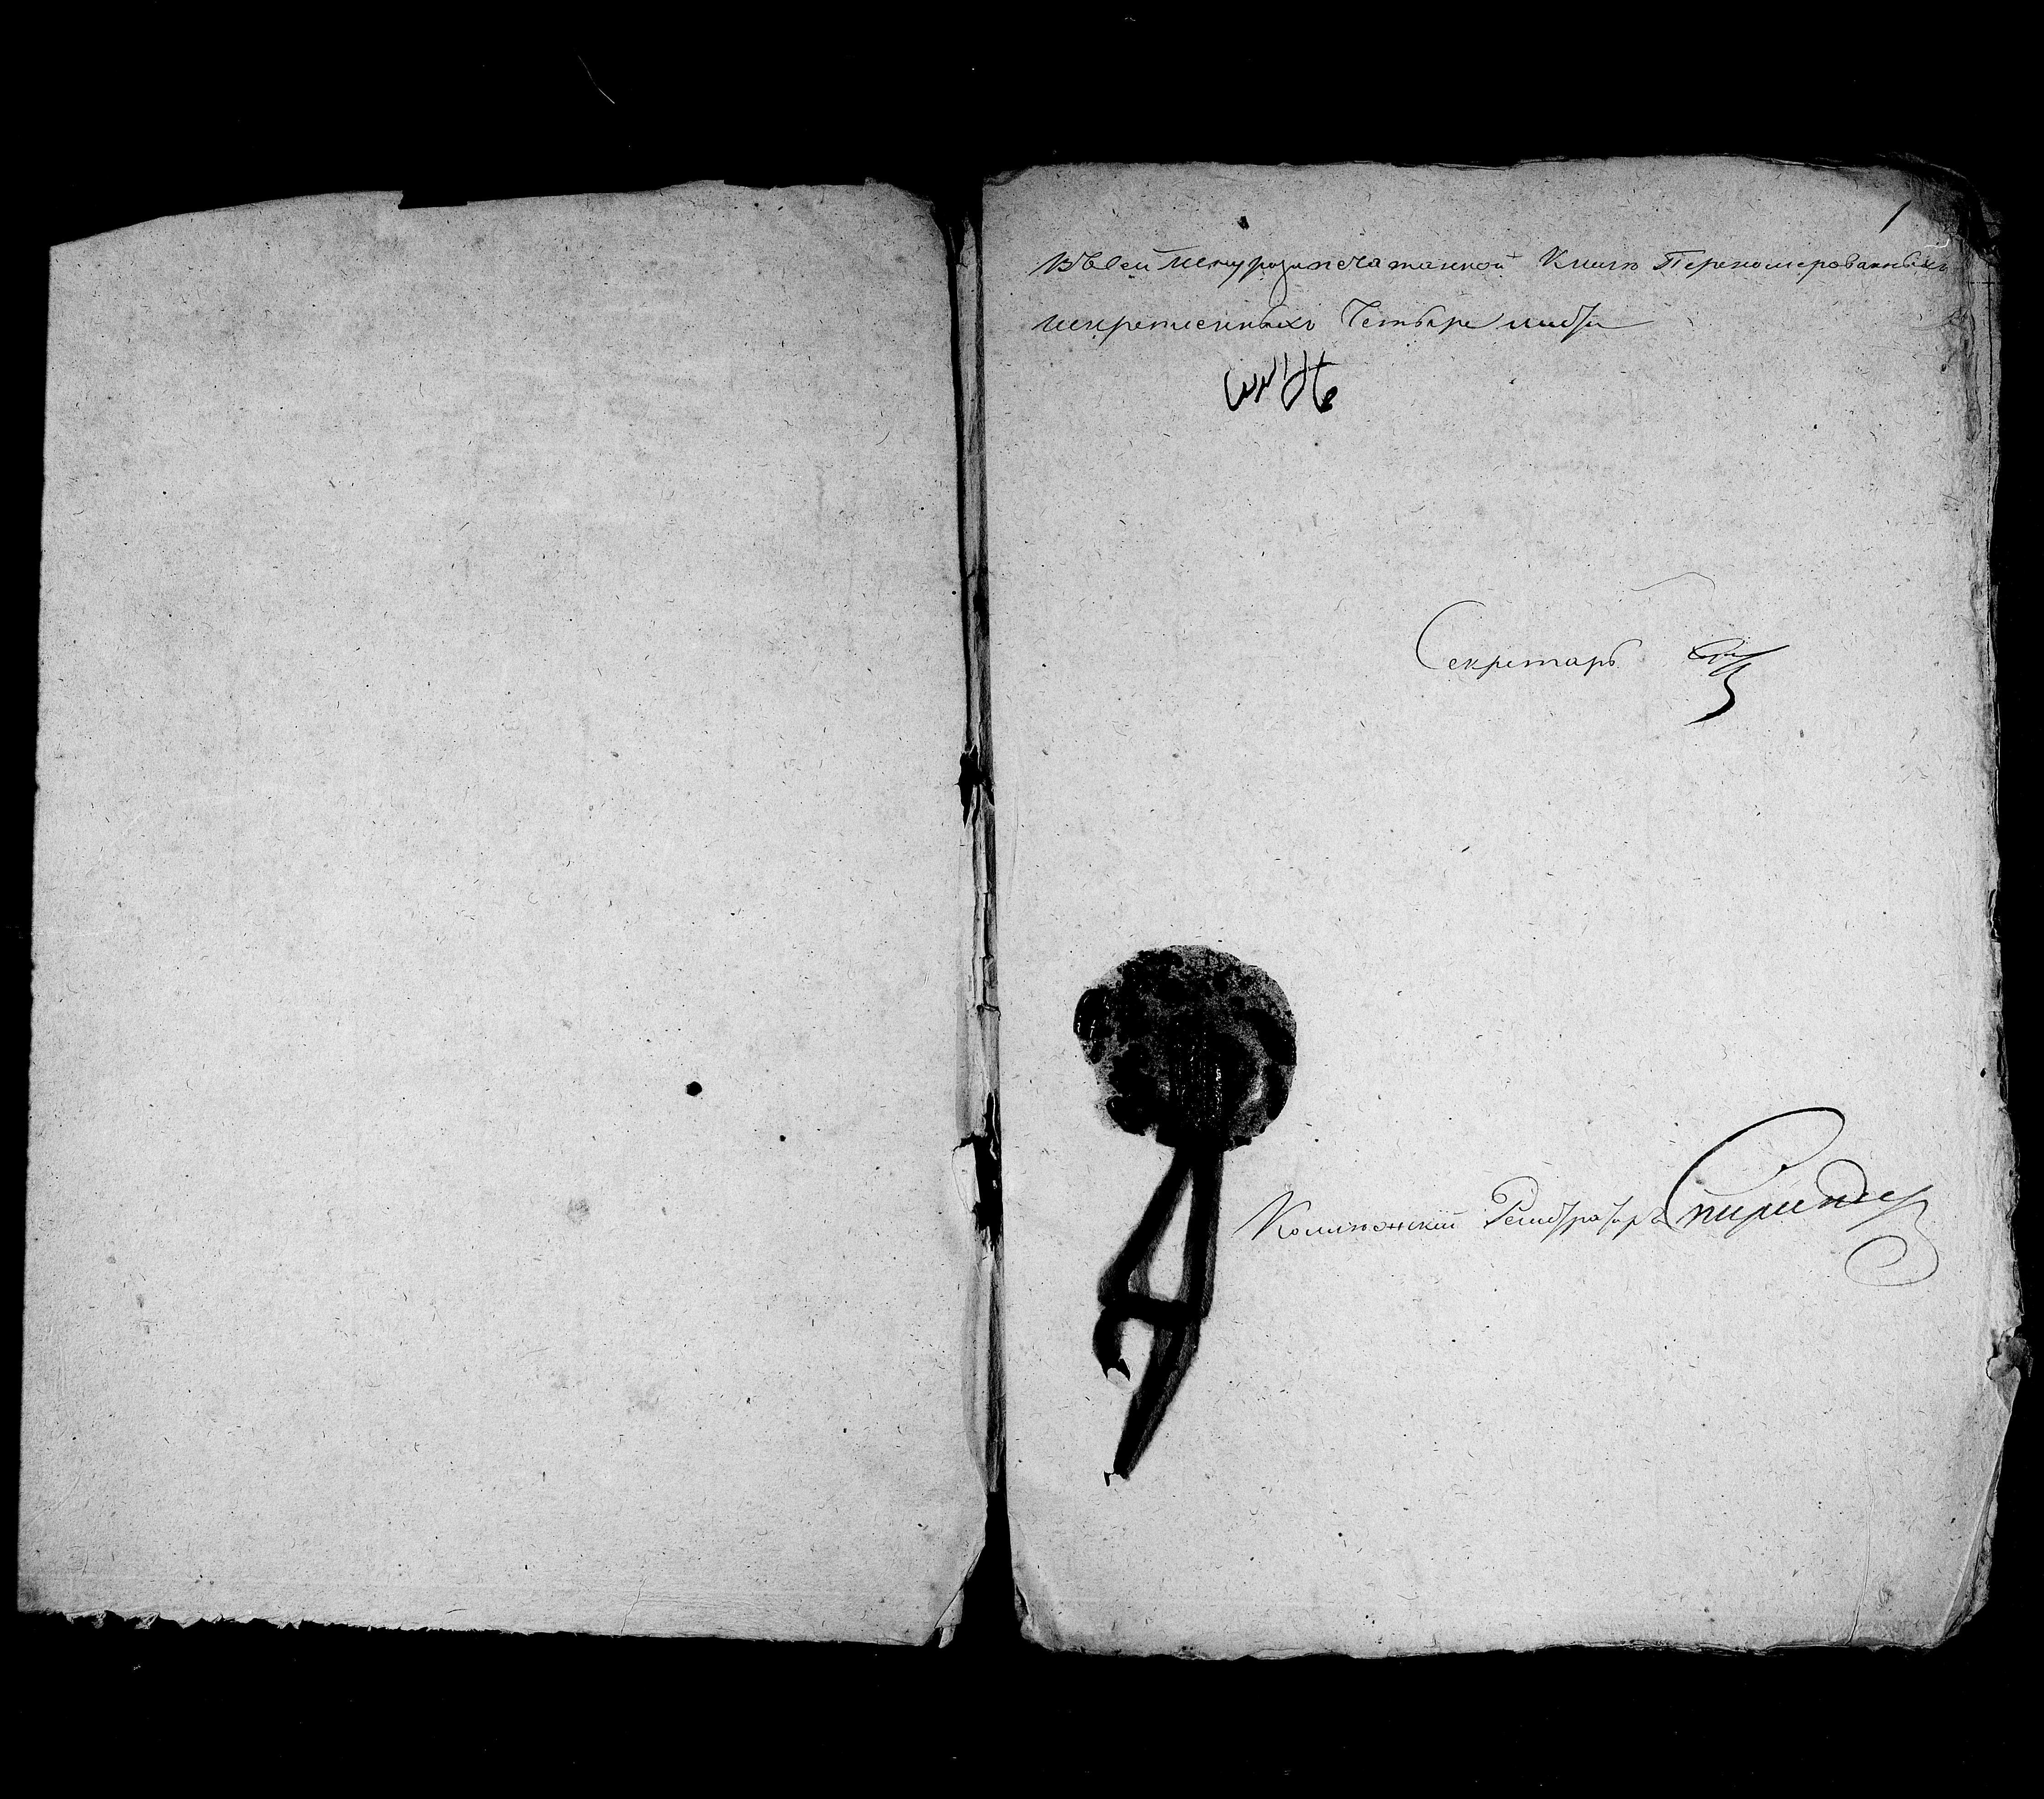 1
Въ сей шнурозапечатанной Книге Перенумерованныхъ
искрепленныхъ Четыре листа
Секретарь
Коллежскій Регистраторъ